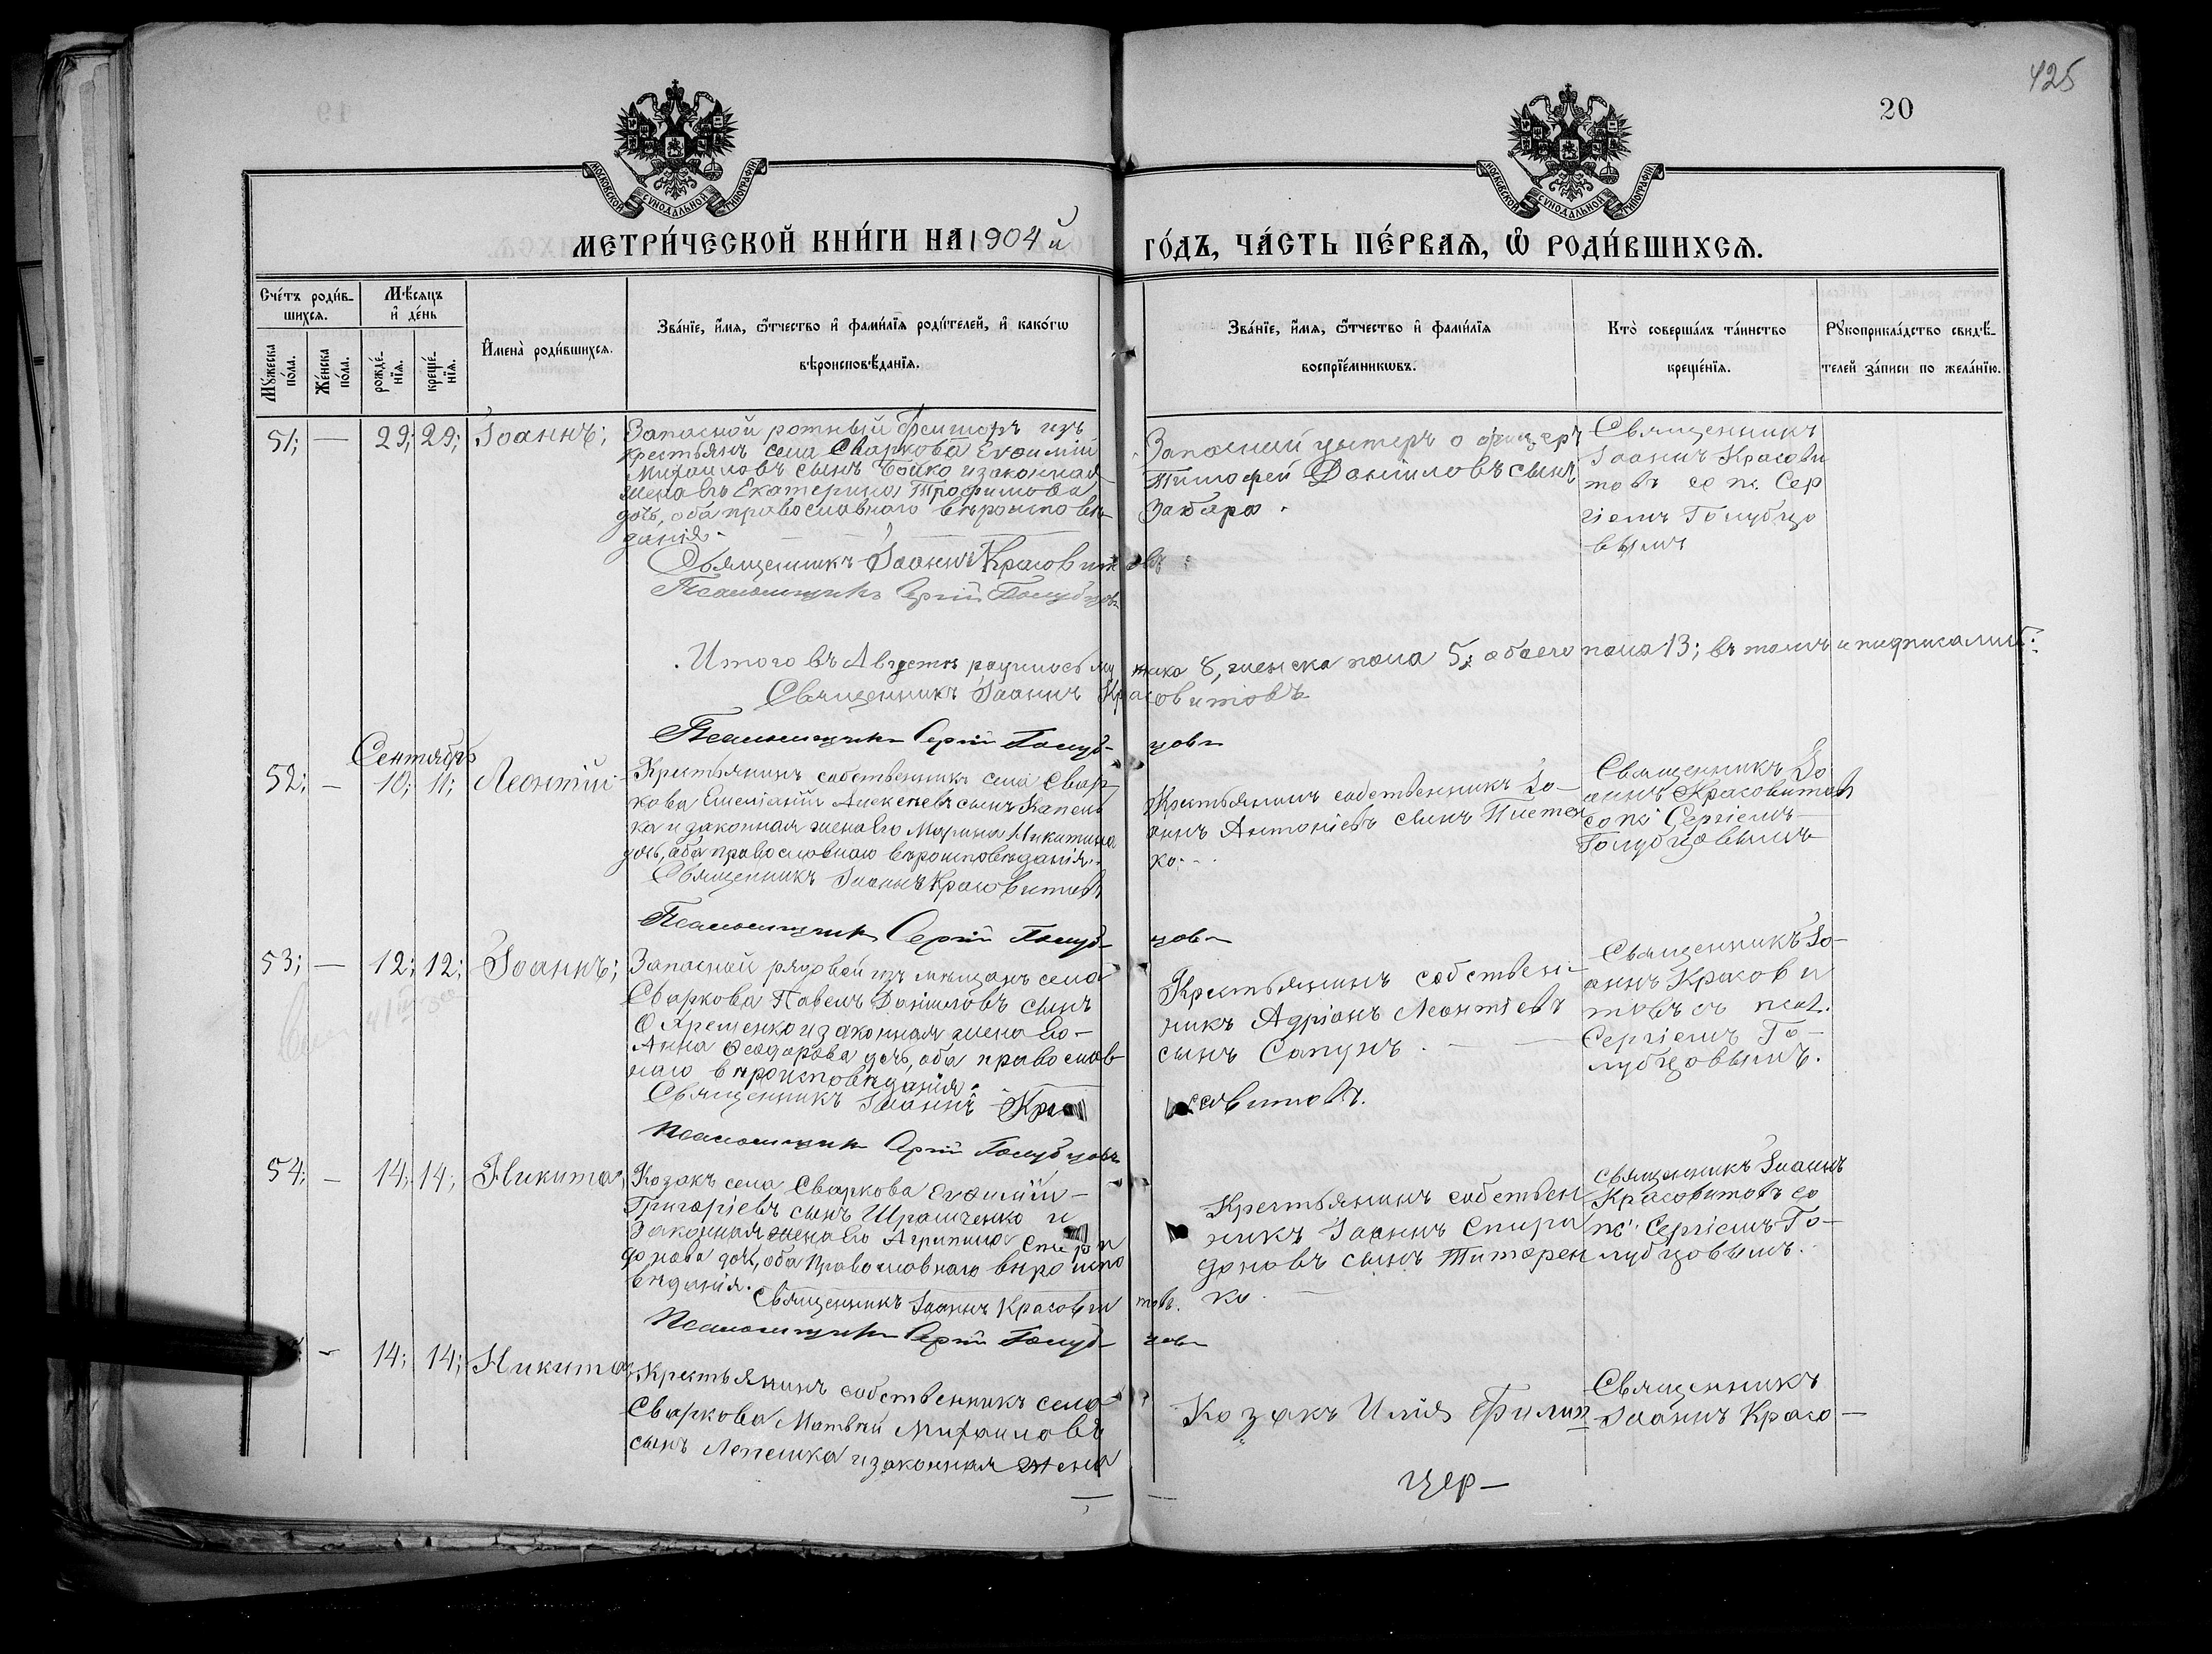 425
20
МОСКОВСКОЙ СѴНОДАЛЬНОЙ ТИПОГРАФІИ
МОСКОВСКОЙ СѴНОДАЛЬНОЙ ТИПОГРАФІИ
МЕТРИ́ЧЕСКОЙ КНИ́ГИ НА 1904й ГО́ДЪ, ЧА́СТЬ ПЕ́РВАѦ, Ѡ РОДИ́ВШИХСѦ.
Сче́тъ роди́в-
шихсѧ.
Мꙋжеска по́ла.
Же́нска по́ла.
Мѣ́сѧцъ
и҆ де́нь
рожде́-
нїѧ.
креще́-
нїѧ.
И҆мена̀ роди́вшихсѧ.
Зва́нїе, и҆́мѧ, ѻ҆́тчество и҆ фами́лїѧ роди́телей, и҆ како́гѡ
вѣроисповѣ́данїѧ.
Зва́нїе, и҆́мѧ, ѻ҆́тчество и҆ фами́лїѧ
воспрїе́мникѡвъ.
Кто̀ соверша́лъ та́инство
креще́нїѧ.
Рꙋкоприкла́дство свидѣ́-
телей за́писи по жела́нїю.
51; — 29; 29; Іоаннъ;
Запасной ротный изъ
крестьянъ села Сваркова Евѳимій
Михаиловъ сынъ Бойко и законная
жена Екатерина Трофимова
дочь, оба православнаго вѣроисповѣ-
данія.
Священникъ Іоаннъ Красовитовъ
Псаломщикъ Сергій Голубцовъ
Запасный унтеръ о фицеръ
Тимофей Даніиловъ сынъ
Забара.
Священникъ
Іоаннъ Красови
товъ со п. Сер
гіемъ Голубцо
вымъ
Итого въ Августѣ родилось мужска 8, женска пола 5; обоего пола 13; въ томъ и подписались:
Священникъ Іоаннъ Красовитовъ
Псаломщикъ Сергій Голубцовъ
Сентябрь
52; — 10; 11; Леонтій
Крестьянинъ собственникъ села Свар
кова Алексѣевъ сынъ
ка и законная жена его Марина Никитина
дочь, оба православнаго вѣроисповѣданія.
Священникъ Іоаннъ Красовитовъ
Псаломщикъ Сергій Голубцовъ
Крестьянинъ собственникъ Іо-
аннъ Антоніевъ сынъ
ко.
Священникъ Іо
аннъ Красовитовъ
со п. Сергіемъ
Голубцовымъ
53; — 12; 12; Іоаннъ;
Запасный рядовой изъ мѣщанъ села
Сваркова Павелъ Даніиловъ сынъ
и законная жена его
Анна Ѳеодорова дочь, оба православ
наго вѣроисповѣданія.
Священникъ Іоаннъ Красовитовъ.
Псаломщикъ Сергій Голубцовъ
Крестьянинъ собствен-
никъ Адріанъ Леонтіевъ
сынъ Сапунъ.
Священникъ Іо-
аннъ Красови
товъ съ псал.
Сергіемъ Го-
лубцовымъ.
54; — 14; 14; Никита,
Козакъ села Сваркова Евѳимій
Григоріевъ сынъ и
законная жена его Агрипина Спири
донова дочь, оба православнаго вѣроиспо
вѣданія.
Священникъ Іоаннъ Красовитовъ.
Псаломщикъ Сергій Голубцовъ
Крестьянинъ собствен
никъ Іоаннъ Спири
доновъ сынъ Титарен
ко.
Священникъ Іоаннъ
Красовитовъ со
пс. Сергіемъ Го-
лубцовымъ.
— 14; 14; Никита,
Крестьянинъ собственникъ села
Сваркова Матвѣй Михаиловъ
сынъ Лепешка и законная жена
Козакъ Илія Филип
Священникъ
Іоаннъ Красо-
цер-